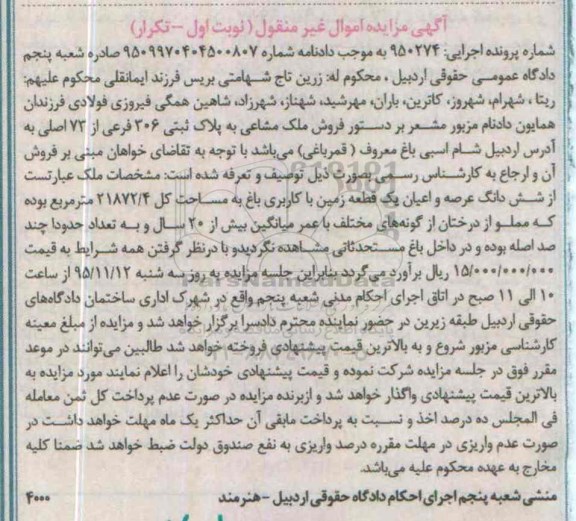 آگهی مزایده اموال غیر منقول ( نوبت اول -- تکرار)
شماره پرونده اجرایی: ۹۵۰۲۷۴ به موجب دادنامه شماره ۹۵۰۹۹۷۰۴۰۴۵۰۰۸۰۷ صادره شعبه پنجم
دادگاه عمومی حقوقی اردبیل ، محکوم له: زرین تاج شهامتی بریس فرزند ایمانقلی محکوم علیهم:
ریتا ، شهرام، شهروز، کاترین، باران، مهرشید، شهناز، شهرزاد، شاهین همگی فیروزی فولادی فرزندان
همایون دادنام مزبور مشعر بر دستور فروش ملک مشاعی به پلاک ثبتی ۳۰۶ فرعی از ۷۳ اصلی به
آدرس اردبیل شام اسبی باغ معروف ( قمرباغی) می‌باشد با توجه به تقاضای خواهان مبنی بر فروش
آن و ارجاع به کارشناس رسمی بصورت ذیل توصیف و تعرفه شده است: مشخصات ملک عبارتست
از شش دانگ عرصه و اعیان یک قطعه زمین با کاربری باغ به مساحت کل ۲۱۸۷۲/۴ مترمربع بوده
که مملو از درختان از گونه‌های مختلف با عمر میانگین بیش از ۲۰ سال و به تعداد حدودا چند
صد اصله بوده و در داخل باغ مستحدثاتی مشاهده نگردیدو با درنظر گرفتن همه شرایط به قیمت
۱۵/۰۰۰/۰۰۰/۰۰۰ ریال برآورد می‌گردد بنابراین جلسه مزایده به روز سه شنبه ۹۵/۱۱/۱۲ از ساعت
۱۰ الی ۱۱ صبح در اتاق اجرای احکام مدنی شعبه پنجم واقع در شهرک اداری ساختمان دادگاه‌های
حقوقی اردبیل طبقه زیرین در حضور نماینده محترم دادسرا برگزار خواهد شد و مزایده از مبلغ معینه
کارشناسی مزبور شروع و به بالاترین قیمت پیشنهادی فروخته خواهد شد طالبین می‌توانند در موعد
مقرر فوق در جلسه مزایده شرکت نموده و قیمت پیشنهادی خودشان را اعلام نمایند مورد مزایده به
بالاترین قیمت پیشنهادی واگذار خواهد شد و ازبرنده مزایده در صورت عدم پرداخت کل ثمن معامله
فی المجلس ده درصد اخذ و نسبت به پرداخت مابقی آن حداکثر یک ماه مهلت خواهد داشت در
صورت عدم واریزی در مهلت مقرره درصد واریزی به نفع صندوق دولت ضبط خواهد شد ضمنا کلیه
مخارج به عهده محکوم علیه می‌باشد.
منشی شعبه پنجم اجرای احکام دادگاه حقوقی اردبیل - هنرمند ۴۰۰۰